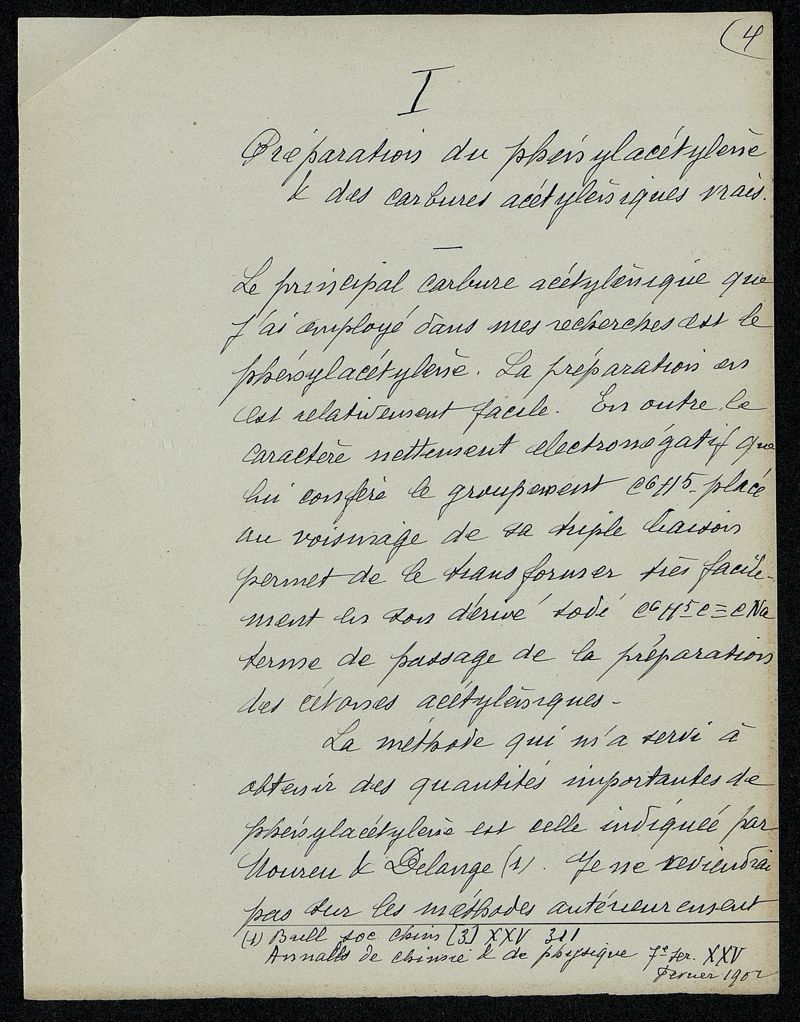 (4
I
Préparation du phénylacétylène
& des carbures acétyléniques vrais.
Le principal carbure acétylénique que
j'ai employé dans mes recherches est le
phénylacétylène. La préparation en
est relativement facile. En outre le
caractère nettement electronégatif que
lui confère le groupement C6H5- placé
au voisinage de sa triple liaison
permet de le transformer très facile-
ment en son dérivé sodé C6H5-C≡CNa
terme de passage de la préparation
des cétones acétyléniques-
La méthode qui m'a servi à
obtenir des quantités importantes de
phénylacétylène est celle indiquée par
Moureu & Delange (1). Je ne reviendrai
pas sur les méthodes antérieurement
(1) Bull soc chim [3] XXV 311
Annales de chimie & de physique 7e ser. XXV
Fevrier 1902